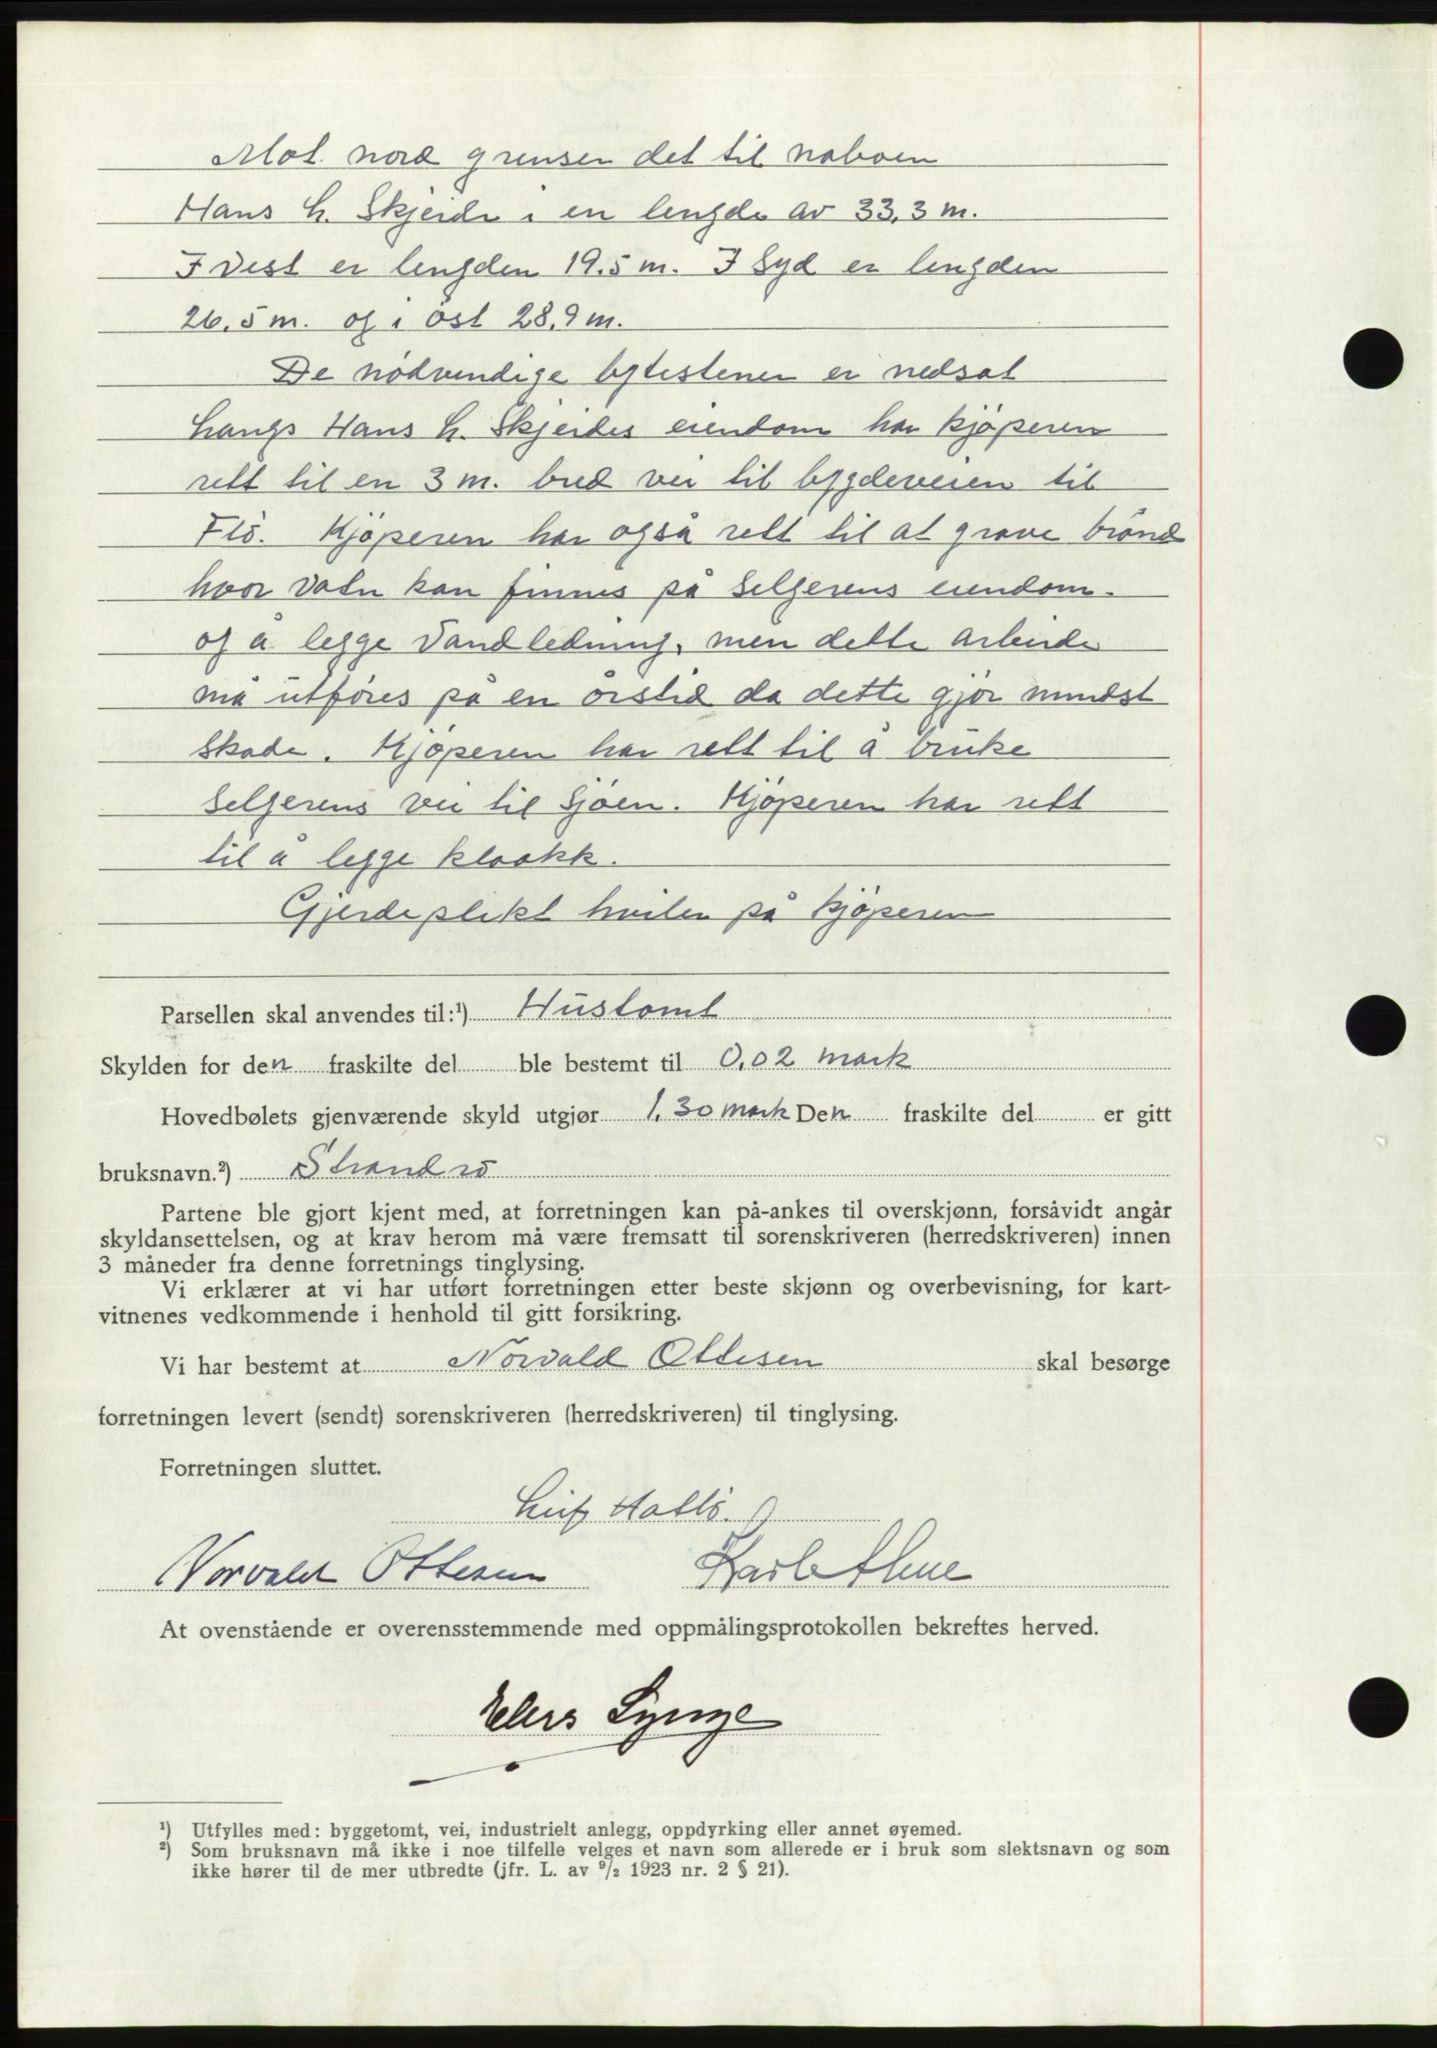 Mot nord grenser det til naboen
Hans L. Skjeide i en lengde av 33,3 m.
I vest er lengden 19.5 m. I Syd er lengden
26,5 m. og i öst 28,9 m.
De nödvendige bytestener er nedsat
Langs Hans L. Skjeides eiendom har kjöperen
rett til en 3 m. bred vei til bygdeveien til
Flö. Kjöperen har også rett til at grave brönd
hvor vatn kan finnes på selgerens eiendom.
og å legge vandledning, men dette arbeide
må utföres på en årstid da dette gjör mindst
skade. Kjöperen har rett til å bruke
selgerens vei til sjöen. Kjöperen har rett
til å legge kloakk.
Gjerdeplikt hviler på kjöperen
Parsellen skal anvendes til:¹) Hustomt
Skylden for den fraskilte del ble bestemt til 0,02 mark
Hovedbølets gjenværende skyld utgjør 1,30 mark Den fraskilte del er gitt
bruksnavn.²) Strandrö
Partene ble gjort kjent med, at forretningen kan på-ankes til overskjønn, forsåvidt angår
skyldansettelsen, og at krav herom må være fremsatt til sorenskriveren (herredskriveren) innen
3 måneder fra denne forretnings tinglysing.
Vi erklærer at vi har utført forretningen etter beste skjønn og overbevisning, for kart-
vitnenes vedkommende i henhold til gitt forsikring.
Vi har bestemt at Norvald Ottesen skal besørge
forretningen levert (sendt) sorenskriveren (herredskriveren) til tinglysing.
Forretningen sluttet.
Leif Hatlö.
Norvald Ottesen Karl
At ovenstående er overensstemmende med oppmålingsprotokollen bekreftes herved.
Elias Synge
¹) Utfylles med: byggetomt, vei, industrielt anlegg, oppdyrking eller annet øyemed.
²) Som bruksnavn må ikke i noe tilfelle velges et navn som allerede er i bruk som slektsnavn og som
ikke hører til de mer utbredte (jfr. L. av ⁹/₂ 1923 nr. 2 § 21).